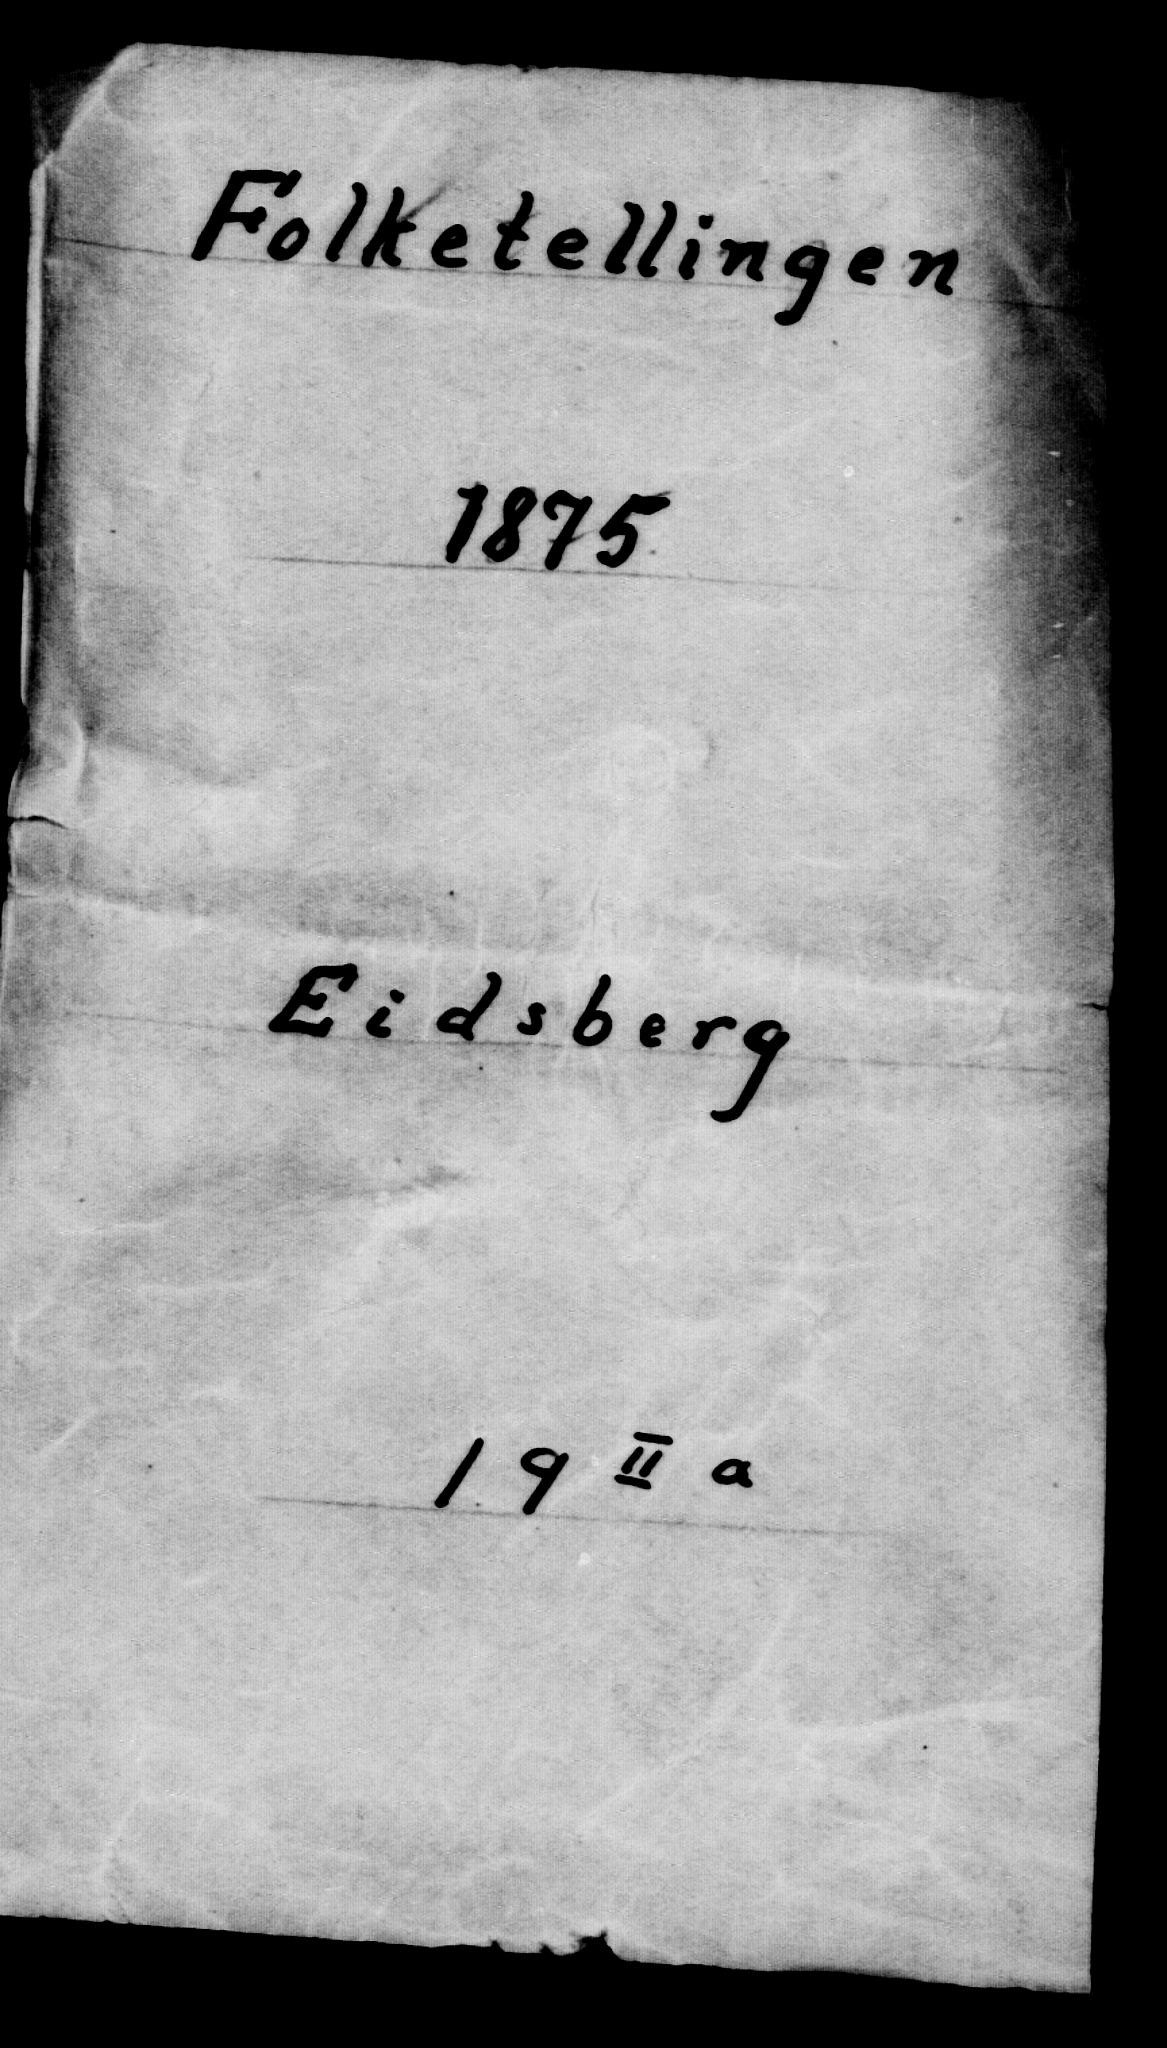 Folketellingen
1875
Eidsberg
19 II a